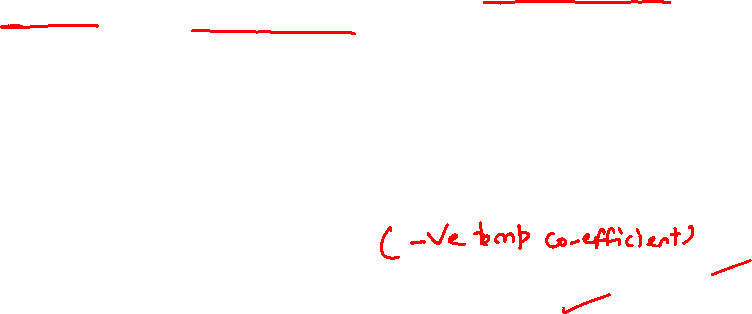 (-Ve temp co-efficient)